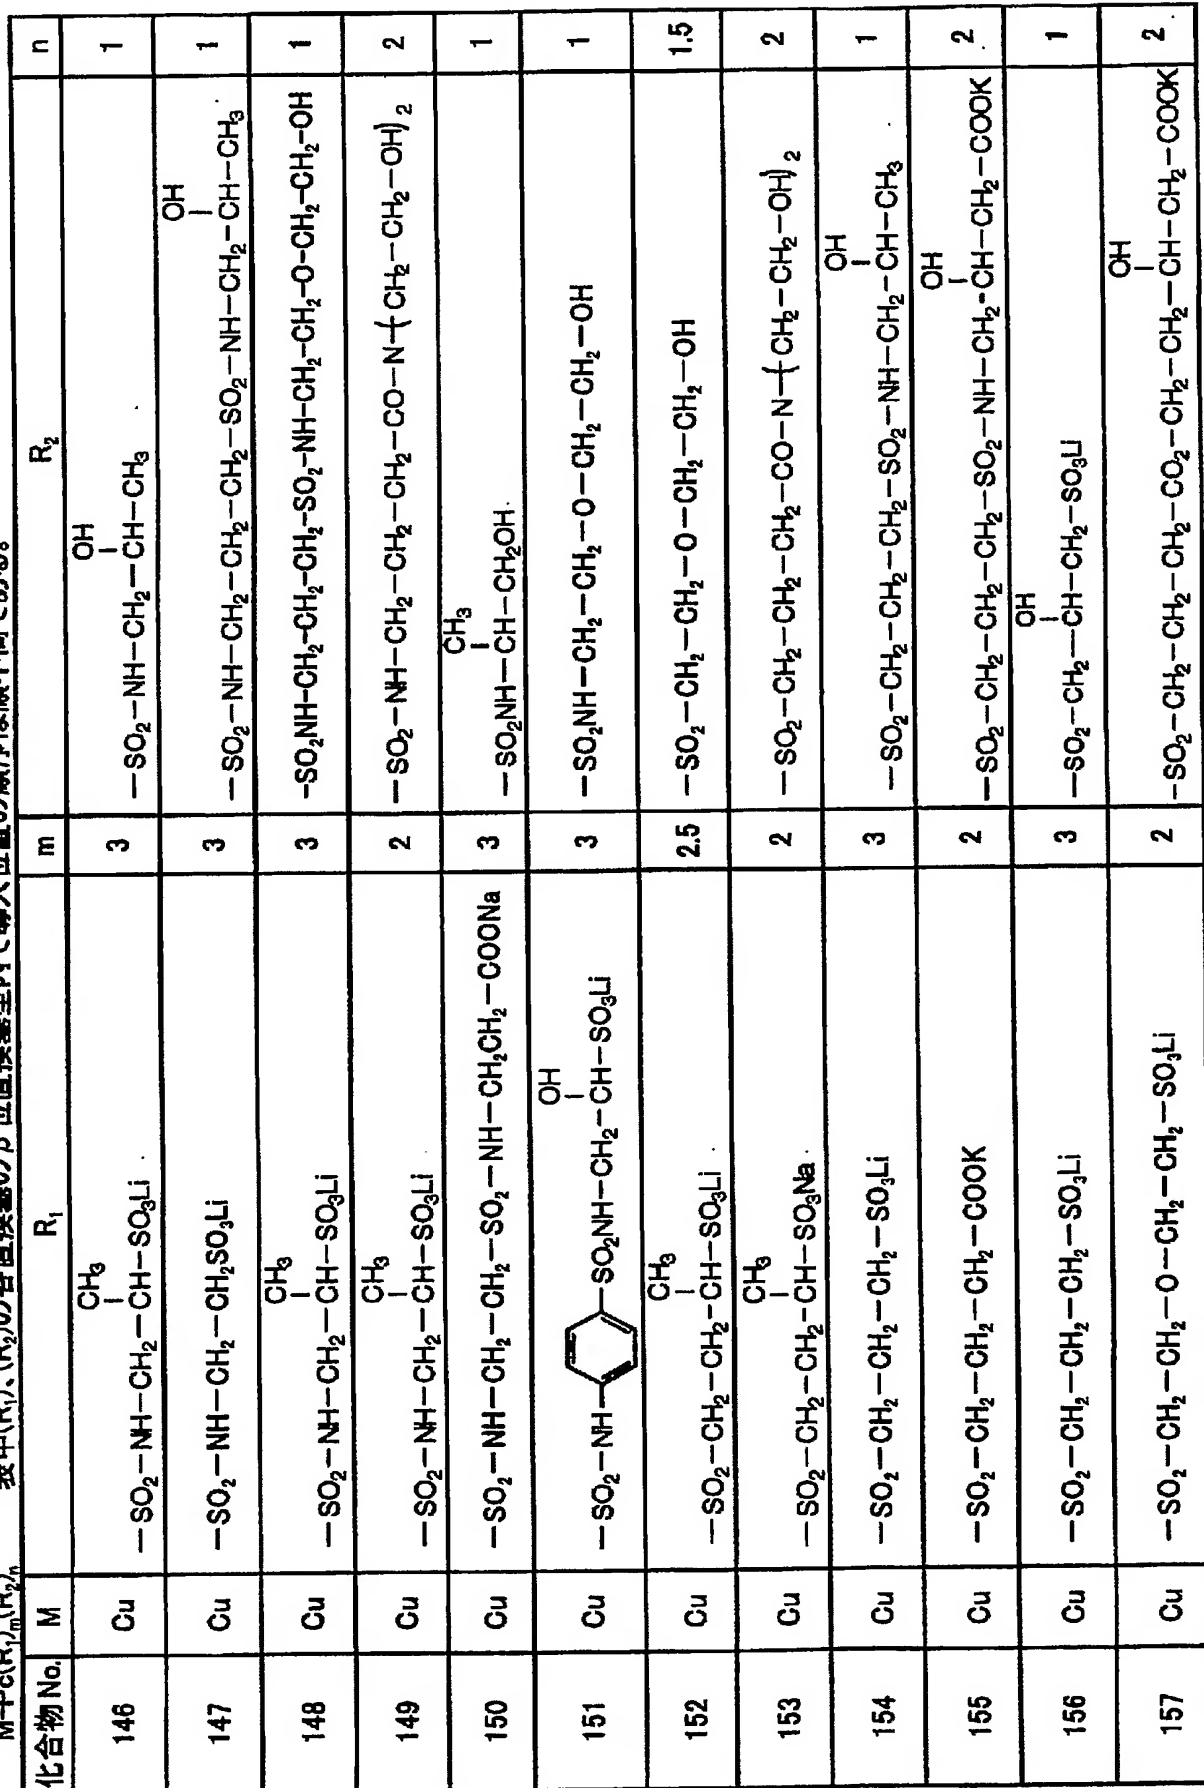 M-Pc(R₁)ₘ(R₂)ₙ 表中(R₁)、(R₂)の各置換基のβ位置換基型内で導入位置の順序は順不同である。
化合物No. M R₁ m R₂ n
CH₃ OH
146 Cu —SO₂—NH—CH₂—CH—SO₃Li 3 —SO₂—NH—CH₂—CH—CH₃ 1
OH
147 Cu —SO₂—NH—CH₂—CH₂SO₃Li 3 —SO₂—NH—CH₂—CH₂—CH₂—SO₂—NH—CH₂—CH—CH₃ 1
CH₃
148 Cu —SO₂—NH—CH₂—CH—SO₃Li 3 -SO₂NH-CH₂-CH₂-CH₂-SO₂-NH-CH₂-CH₂-O-CH₂-CH₂-OH 1
CH₃
149 Cu —SO₂—NH—CH₂—CH—SO₃Li 2 —SO₂—NH—CH₂—CH₂—CH₂—CO—N-(CH₂—CH₂—OH)₂ 2
CH₃
150 Cu —SO₂—NH—CH₂—CH₂—SO₂—NH—CH₂CH₂—COONa 3 —SO₂NH—CH—CH₂OH 1
OH
151 Cu —SO₂—NH— —SO₂NH—CH₂—CH—SO₃Li 3 —SO₂NH—CH₂—CH₂—O—CH₂—CH₂—OH 1
CH₃
152 Cu —SO₂—CH₂—CH₂—CH—SO₃Li 2.5 —SO₂—CH₂—CH₂—O—CH₂—CH₂—OH 1.5
CH₃
153 Cu —SO₂—CH₂—CH₂—CH—SO₃Na 2 —SO₂—CH₂—CH₂—CH₂—CO—N-(CH₂—CH₂—OH)₂ 2
OH
154 Cu —SO₂—CH₂—CH₂—CH₂—SO₃Li 3 —SO₂—CH₂—CH₂—CH₂—SO₂—NH—CH₂—CH—CH₃ 1
OH
155 Cu —SO₂—CH₂—CH₂—CH₂—COOK 2 —SO₂—CH₂—CH₂—CH₂—SO₂—NH—CH₂-CH—CH₂—COOK 2
OH
156 Cu —SO₂—CH₂—CH₂—CH₂—SO₃Li 3 —SO₂—CH₂—CH—CH₂—SO₃Li 1
OH
157 Cu —SO₂—CH₂—CH₂—O—CH₂—CH₂—SO₃Li 2 -SO₂—CH₂—CH₂—CH₂—CO₂—CH₂—CH₂—CH—CH₂—COOK 2